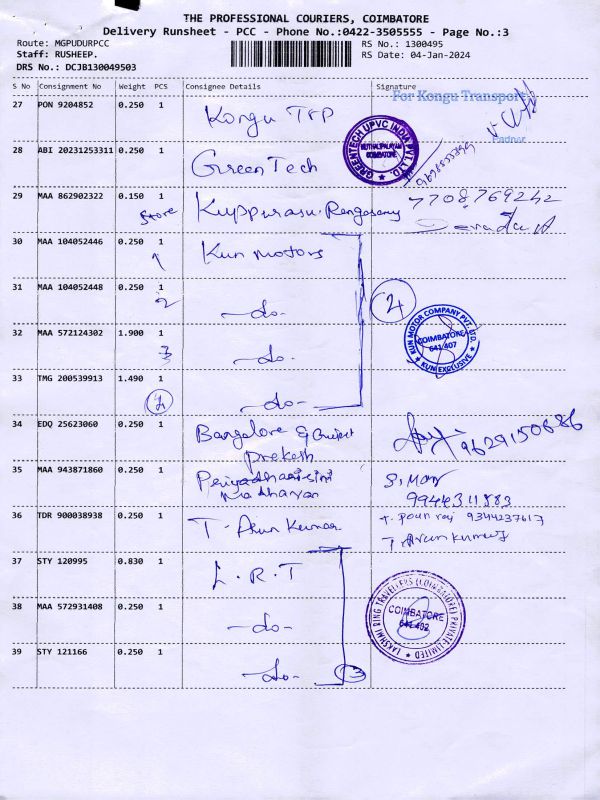 THE PROFESSIONAL COURIERS, COIMBATORE
Delivery Runsheet - PCC - Phone No.:0422-3505555 - Page No.:3
Route: MGPUDURPCC
Staff: RUSHEEP.
DRS No.: DCJB130049503
RS No.: 1300495
RS Date: 04-Jan-2024
S No Consignment No Weight PCS Consignee Details Signature
For Kongu Transport
27 PON 9204852 0.250 1 Kongu TPP
28 ABI 20231253311 0.250 1 GreenTech
GREENTECH UPVC INDIA PVT. LTD.
COIMBATORE
29 MAA 862902322 0.150 1 Kuppurasu. Rengasamy 7708769242
Store
30 MAA 104052446 0.250 1 Kun motors
1
31 MAA 104052448 0.250 1 -do-
2
4
32 MAA 572124302 1.900 1 -do-
3
KUN MOTOR COMPANY PVT. LTD.
COIMBATORE
641 407
KUN EXCLUSIVE
33 TMG 200539913 1.490 1 -do-
4
34 EDQ 25623060 0.250 1 Bangalore
prekesh
9629150686
35 MAA 943871860 0.250 1 Priyadharisini
9944311883
36 TDR 900038938 0.250 1 T. Arun Kumar
9344237617
T. Arun Kumar
37 STY 120995 0.830 1 L.R.T
38 MAA 572931408 0.250 1 -do-
LAKSHMI RING TRAVELLERS (COIMBATORE) PRIVATE LIMITED
COIMBATORE
641 402
39 STY 121166 0.250 1 -do- 3